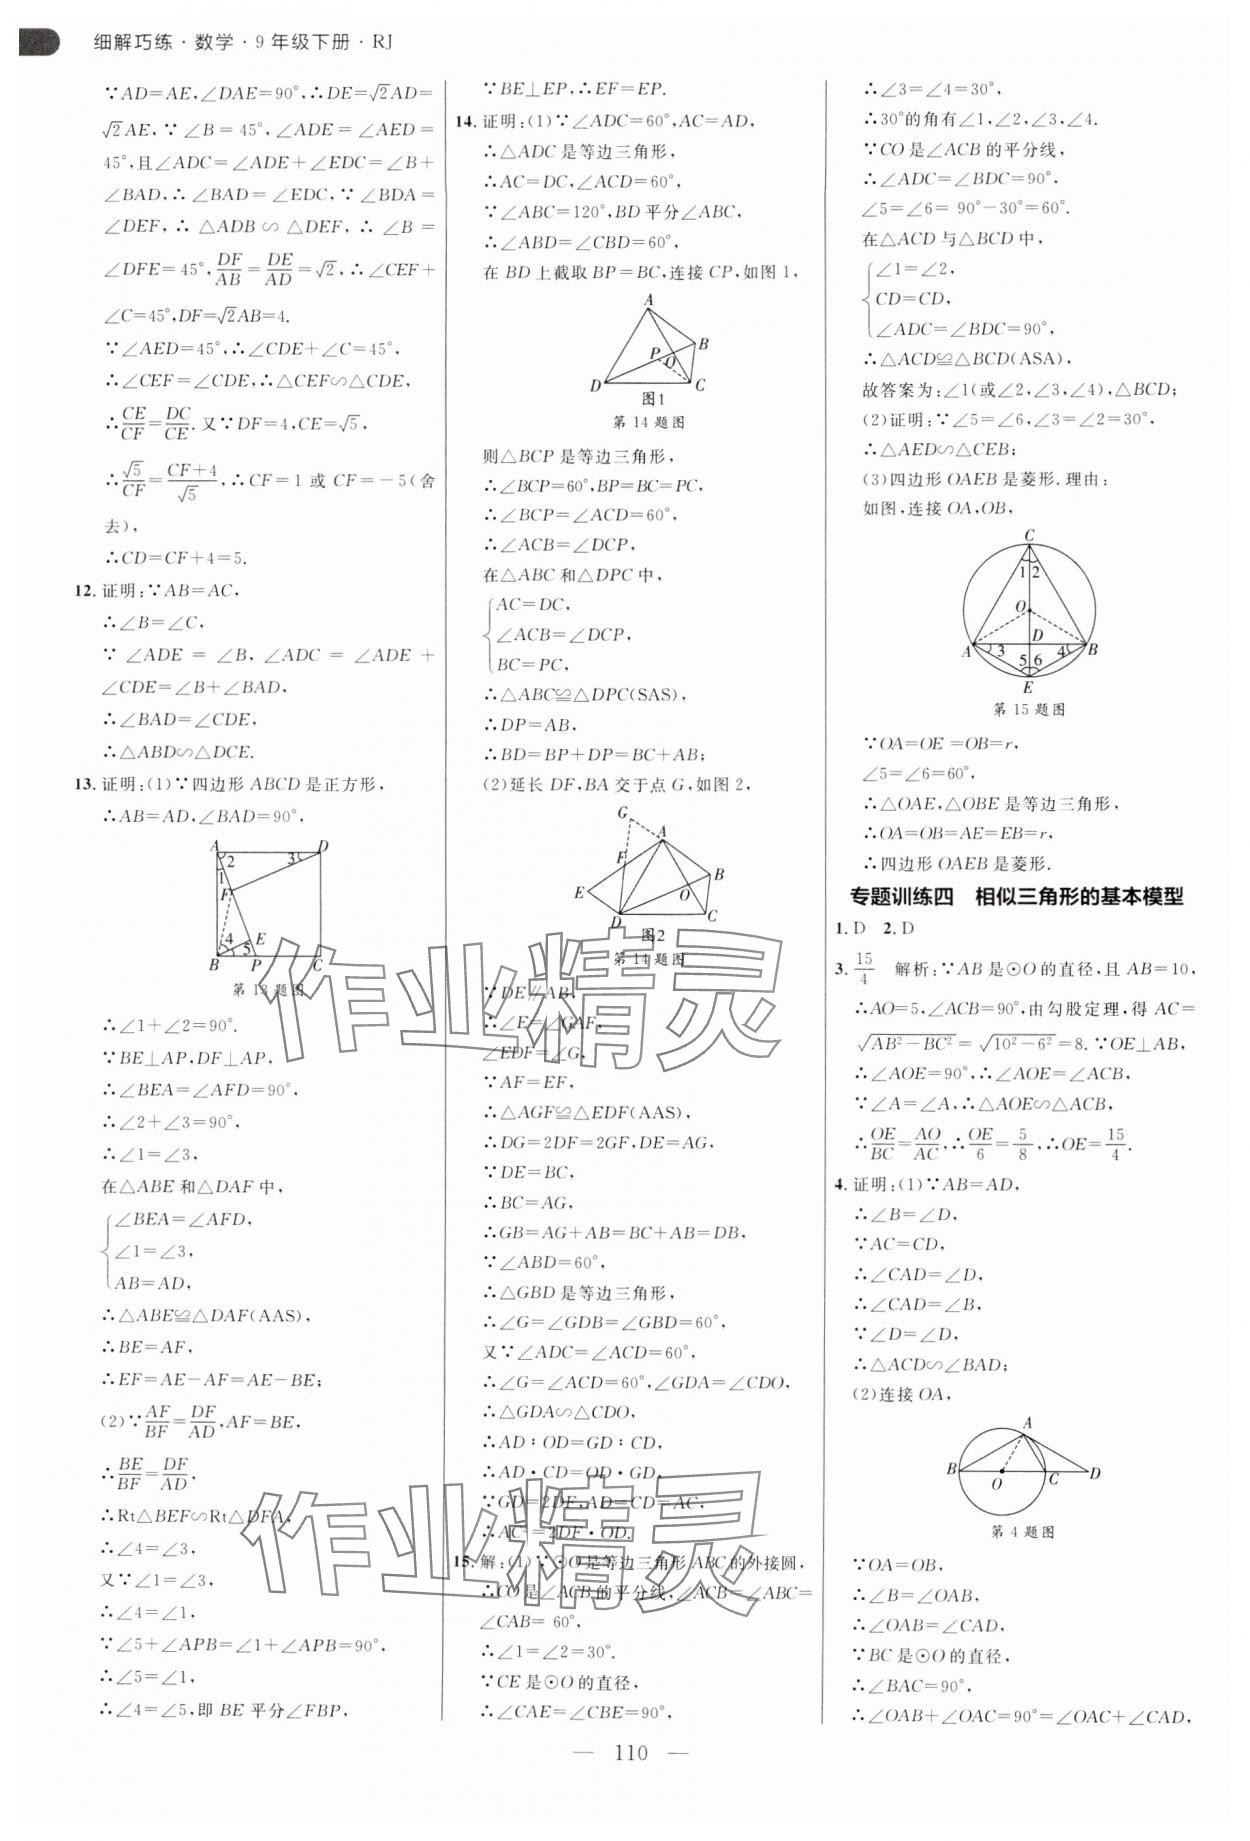 细解巧练·数学·9年级下册·RJ
∵AD=AE,∠DAE=90°,∴DE=√2AD=
√2AE,∵∠B=45°,∠ADE=∠AED=
45°,且∠ADC=∠ADE+∠EDC=∠B+
∠BAD,∴∠BAD=∠EDC,∵∠BDA=
∠DEF,∴△ADB∽△DEF,∴∠B=
∠DFE=45°,DF/AB=DE/AD=√2,∴∠CEF+
∠C=45°,DF=√2AB=4.
∵∠AED=45°,∴∠CDE+∠C=45°,
∴∠CEF=∠CDE,∴△CEF∽△CDE,
∴CE/CF=DC/CE.又∵DF=4,CE=√5,
∴√5/CF=CF+4/√5,∴CF=1或CF=-5(舍
去),
∴CD=CF+4=5.
12.证明:∵AB=AC,
∴∠B=∠C,
∵∠ADE=∠B,∠ADC=∠ADE+
∠CDE=∠B+∠BAD,
∴∠BAD=∠CDE,
∴△ABD∽△DCE.
13.证明:(1)∵四边形ABCD是正方形,
∴AB=AD,∠BAD=90°,
A 2 3 D
1
F
4 5 E
B P C
第13题图
∴∠1+∠2=90°.
∵BE⊥AP,DF⊥AP,
∴∠BEA=∠AFD=90°,
∴∠2+∠3=90°,
∴∠1=∠3,
在△ABE和△DAF中,
∠BEA=∠AFD,
∠1=∠3,
AB=AD,
∴△ABE≌△DAF(AAS),
∴BE=AF,
∴EF=AE-AF=AE-BE;
(2)∵AF/BF=DF/AD,AF=BE,
∴BE/BF=DF/AD,
∴Rt△BEF∽Rt△DFA,
∴∠4=∠3,
又∵∠1=∠3,
∴∠4=∠1,
∵∠5+∠APB=∠1+∠APB=90°,
∴∠5=∠1,
∴∠4=∠5,即BE平分∠FBP,
∵BE⊥EP,∴EF=EP.
14.证明:(1)∵∠ADC=60°,AC=AD,
∴△ADC是等边三角形,
∴AC=DC,∠ACD=60°,
∵∠ABC=120°,BD平分∠ABC,
∴∠ABD=∠CBD=60°,
在BD上截取BP=BC,连接CP,如图1,
A
B
P O
D C
图1
第14题图
则△BCP是等边三角形,
∴∠BCP=60°,BP=BC=PC,
∴∠BCP=∠ACD=60°,
∴∠ACB=∠DCP,
在△ABC和△DPC中,
AC=DC,
∠ACB=∠DCP,
BC=PC,
∴△ABC≌△DPC(SAS),
∴DP=AB,
∴BD=BP+DP=BC+AB;
(2)延长DF,BA交于点G,如图2,
G
A
F
B
E O
D C
图2
第14题图
∵DE∥AB,
∴∠E=∠GAF,
∠EDF=∠G,
∵AF=EF,
∴△AGF≌△EDF(AAS),
∴DG=2DF=2GF,DE=AG,
∵DE=BC,
∴BC=AG,
∴GB=AG+AB=BC+AB=DB,
∵∠ABD=60°,
∴△GBD是等边三角形,
∴∠G=∠GDB=∠GBD=60°,
又∵∠ADC=∠ACD=60°,
∴∠G=∠ACD=60°,∠GDA=∠CDO,
∴△GDA∽△CDO,
∴AD∶OD=GD∶CD,
∴AD·CD=OD·GD,
∵GD=2DF,AD=CD=AC,
∴AC²=2DF·OD.
15.解:(1)∵⊙O是等边三角形ABC的外接圆,
∴CO是∠ACB的平分线,∠ACB=∠ABC=
∠CAB=60°,
∴∠1=∠2=30°,
∵CE是⊙O的直径,
∴∠CAE=∠CBE=90°,
∴∠3=∠4=30°,
∴30°的角有∠1,∠2,∠3,∠4.
∵CO是∠ACB的平分线,
∴∠ADC=∠BDC=90°,
∠5=∠6=90°-30°=60°.
在△ACD与△BCD中,
∠1=∠2,
CD=CD,
∠ADC=∠BDC=90°,
∴△ACD≌△BCD(ASA),
故答案为:∠1(或∠2,∠3,∠4),△BCD;
(2)证明:∵∠5=∠6,∠3=∠2=30°,
∴△AED∽△CEB;
(3)四边形OAEB是菱形.理由:
如图,连接OA,OB,
C
1 2
O
D
A 3 4 B
5 6
E
第15题图
∵OA=OE=OB=r,
∠5=∠6=60°,
∴△OAE,△OBE是等边三角形,
∴OA=OB=AE=EB=r,
∴四边形OAEB是菱形.
专题训练四 相似三角形的基本模型
1.D 2.D
3.15/4 解析:∵AB是⊙O的直径,且AB=10,
∴AO=5,∠ACB=90°,由勾股定理,得AC=
√(AB²-BC²)=√(10²-6²)=8.∵OE⊥AB,
∴∠AOE=90°,∴∠AOE=∠ACB,
∵∠A=∠A,∴△AOE∽△ACB,
∴OE/BC=AO/AC,∴OE/6=5/8,∴OE=15/4.
4.证明:(1)∵AB=AD,
∴∠B=∠D,
∵AC=CD,
∴∠CAD=∠D,
∴∠CAD=∠B,
∵∠D=∠D,
∴△ACD∽∠BAD;
(2)连接OA,
A
B O C D
第4题图
∵OA=OB,
∴∠B=∠OAB,
∴∠OAB=∠CAD,
∵BC是⊙O的直径,
∴∠BAC=90°,
∴∠OAB+∠OAC=90°=∠OAC+∠CAD,
— 110 —
作业精灵
作业精灵